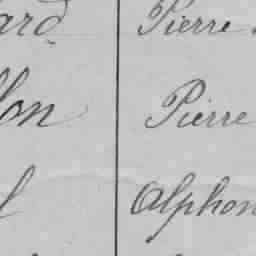 ard Pierre
lon Pierre
l Alphon